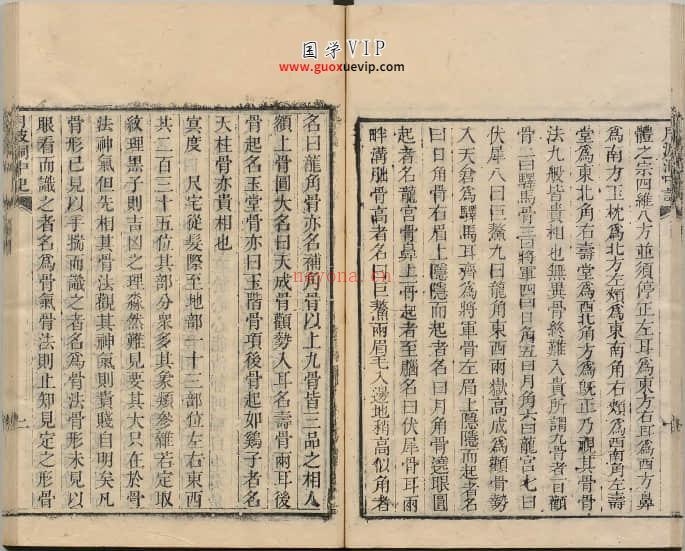 国学VIP
www.guoxuevip.com
nayona.cn
體之宗四維八方並須停正左耳爲東方右耳爲西方鼻
爲南方玉枕爲北方左頰爲東南角右頰爲西南角左壽
堂爲東北角右壽堂爲西北角方爲旣正乃視其骨骨
法九般皆貴相也無異骨終難入貴所謂九骨者一曰顴
骨二曰驛馬骨三曰將軍四曰日角五曰月角六曰龍宮七曰
伏犀八曰巨鰲九曰龍角東西兩嶽高成爲顴骨勢
入天倉爲驛馬耳齊爲將軍骨左眉上隱隱而起者名
曰日角骨右眉上隱隱而起者名曰月角骨遶眼圓
起者名曰龍宮骨鼻上骨起者至腦名曰伏犀骨耳兩
畔溝朏骨高者名曰巨鰲兩眉毛入邊地稍高似角者
名曰龍角骨亦名輔角骨以上九骨皆三品之相人
額上骨圓大名曰天成骨顴勢入耳名壽骨兩耳後
骨起名玉堂骨亦曰玉階骨項後骨起如鷄子者名
天柱骨亦貴相也
寘度 尺宅從髮際至地部一十三部位左右東西
共二百三十五位其部分衆多其象類參雜若定取
紋理黑子則吉凶之理淼然難見要其大只在於骨
法神氣但先相其骨法觀其神氣則貴賤自明矣凡
骨形已見以手揣而識之者名爲骨法骨形未見以
眼看而識之者名爲骨氣骨法則止知見定之形骨
月波洞中記
一